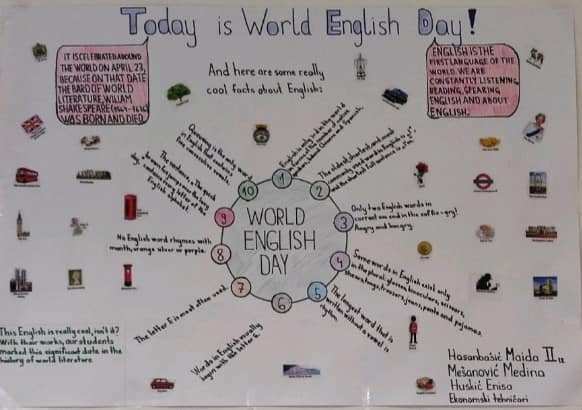 Today is World English Day!
IT IS CELEBRATED AROUND
THE WORLD ON APRIL 23,
BECAUSE ON THAT DATE
THE BARD OF WORLD
LITERATURE, WILLIAM
SHAKESPEARE (1564-1616)
WAS BORN AND DIED.
And here are some really
cool facts about English:
ENGLISH IS THE
FIRST LANGUAGE OF THE
WORLD. WE ARE
CONSTANTLY LISTENING,
READING, SPEARING
ENGLISH AND ABOUT
ENGLISH.
WORLD
ENGLISH
DAY
1
2
The oldest, shortest, and most
commonly used word in English is
3
Only two English words in
current use end in the suffix -gry!
Angry and hungry.
4
Some words in English exist only
in the plural: glasses, binoculars, scissors,
shears, tongs, trousers, jeans, pants and pajamas.
5
The longest word that is
written without a vowel is
rhythm.
6
Words in English usually
begin with the letter S.
7
The letter E is most often used.
8
No English word rhymes with
month, orange, silver or purple.
9
The sentence "The quick
brown fox jumps over the lazy
dog" contains every letter of the
English alphabet.
10
Queueing is the only word
in English that contains
five consecutive vowels.
This English is really cool, isn't it?
With their works, our students
marked this significant date in the
history of world literature.
Hasanbašić Maida II
Mešanović Medina
Huskić Enisa
Ekonomski tehničari